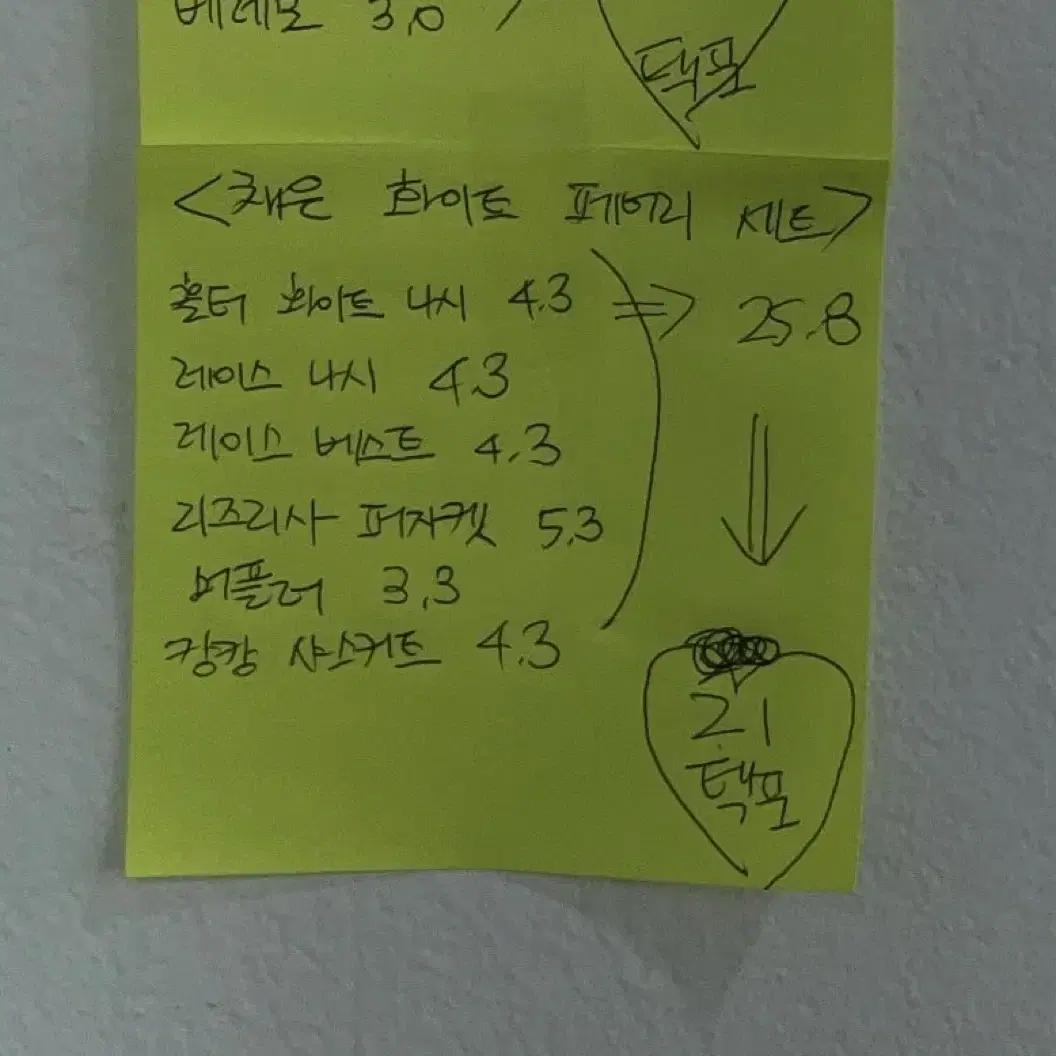 베레모 3.0
택포
<채은 화이트 페어리 세트>
홀터 화이트 나시 4.3 ⇒ 25.8
레이스 나시 4.3
레이스 베스트 4.3
리즈리사 퍼자켓 5.3
머플러 3.3
캉캉 샤스커트 4.3
21
택포